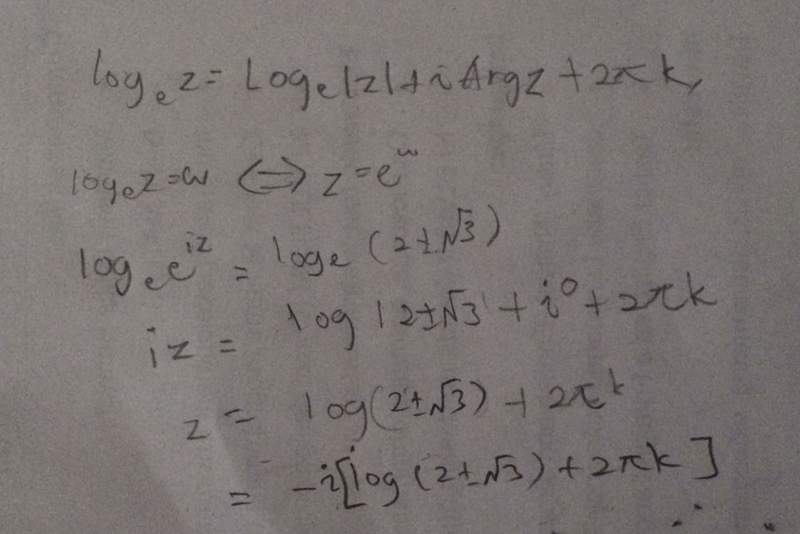 logₑ z = Logₑ|z| + i Arg z + 2πk,
logₑ z = w ⟺ z = e^w
logₑ e^{iz} = logₑ (2±√3)
iz = log |2±√3| + i0 + 2πk
z = log(2±√3) + 2πk
= -i[log (2±√3) + 2πk]